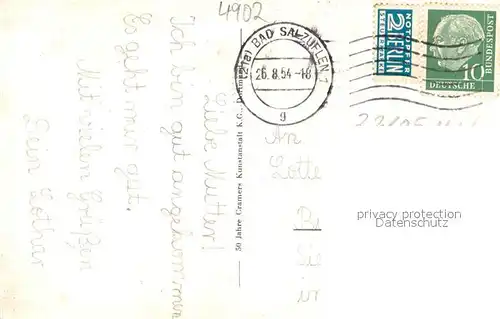 4902
Liebe Mutter!
Ich bin gut angekommen
Es geht mir gut.
Mit vielen Grüßen
Dein Lothar
50 Jahre Cramers Kunstanstalt K.G., Dortmund
(21a) BAD SALZUFLEN 1
26.8.54-18
g
NOTOPFER
2 BERLIN
STEUERMARKE
10
DEUTSCHE
BUNDESPOST
An
Lotte
privacy protection
Datenschutz